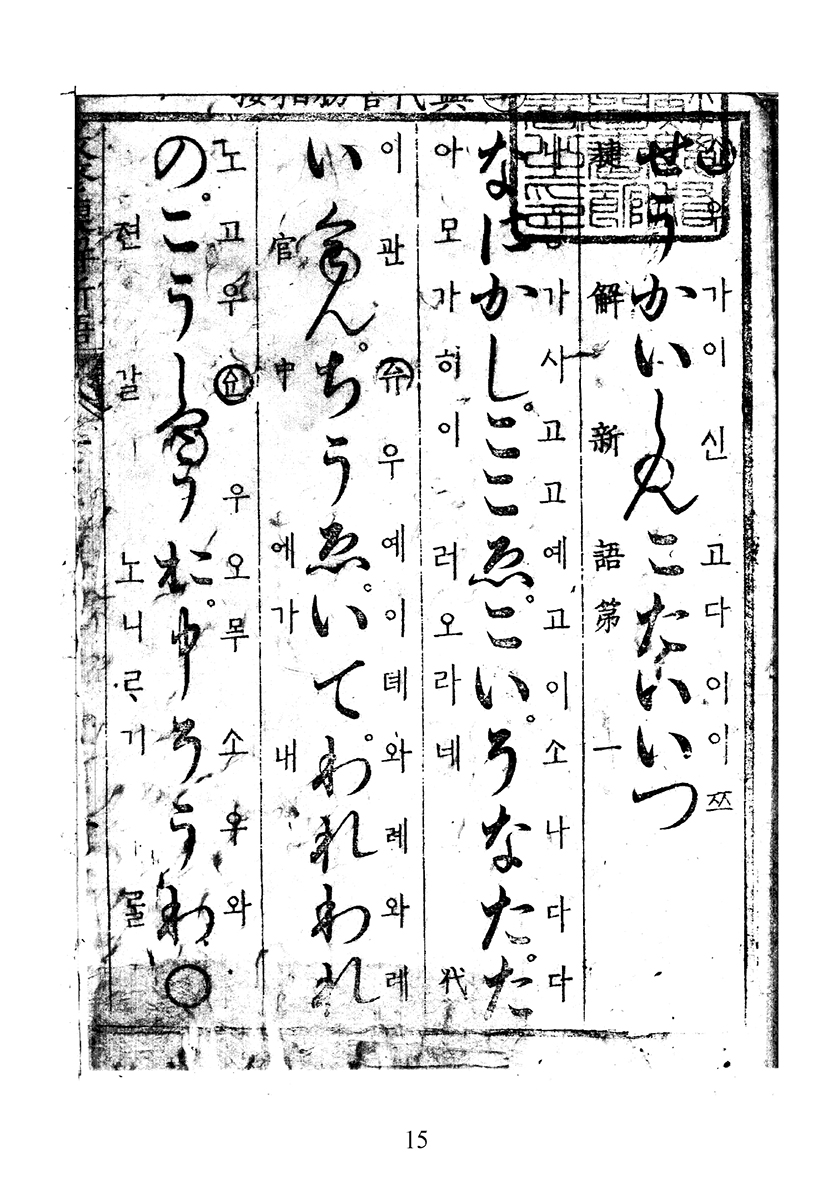 가이신고다이이쯔
せうかいしんこたいいつ
捷解新語第一
가사고고예고이소나다다
なにかしここゑこいそなたた
아모가히이러오라네代
이관쥬우예이톄와례와례
いくわんちうゑいてわれわれ
官中에가내
노고우슈우오무소우와
のこうしゆうおむそうわ
젼갈노니르기롤
15